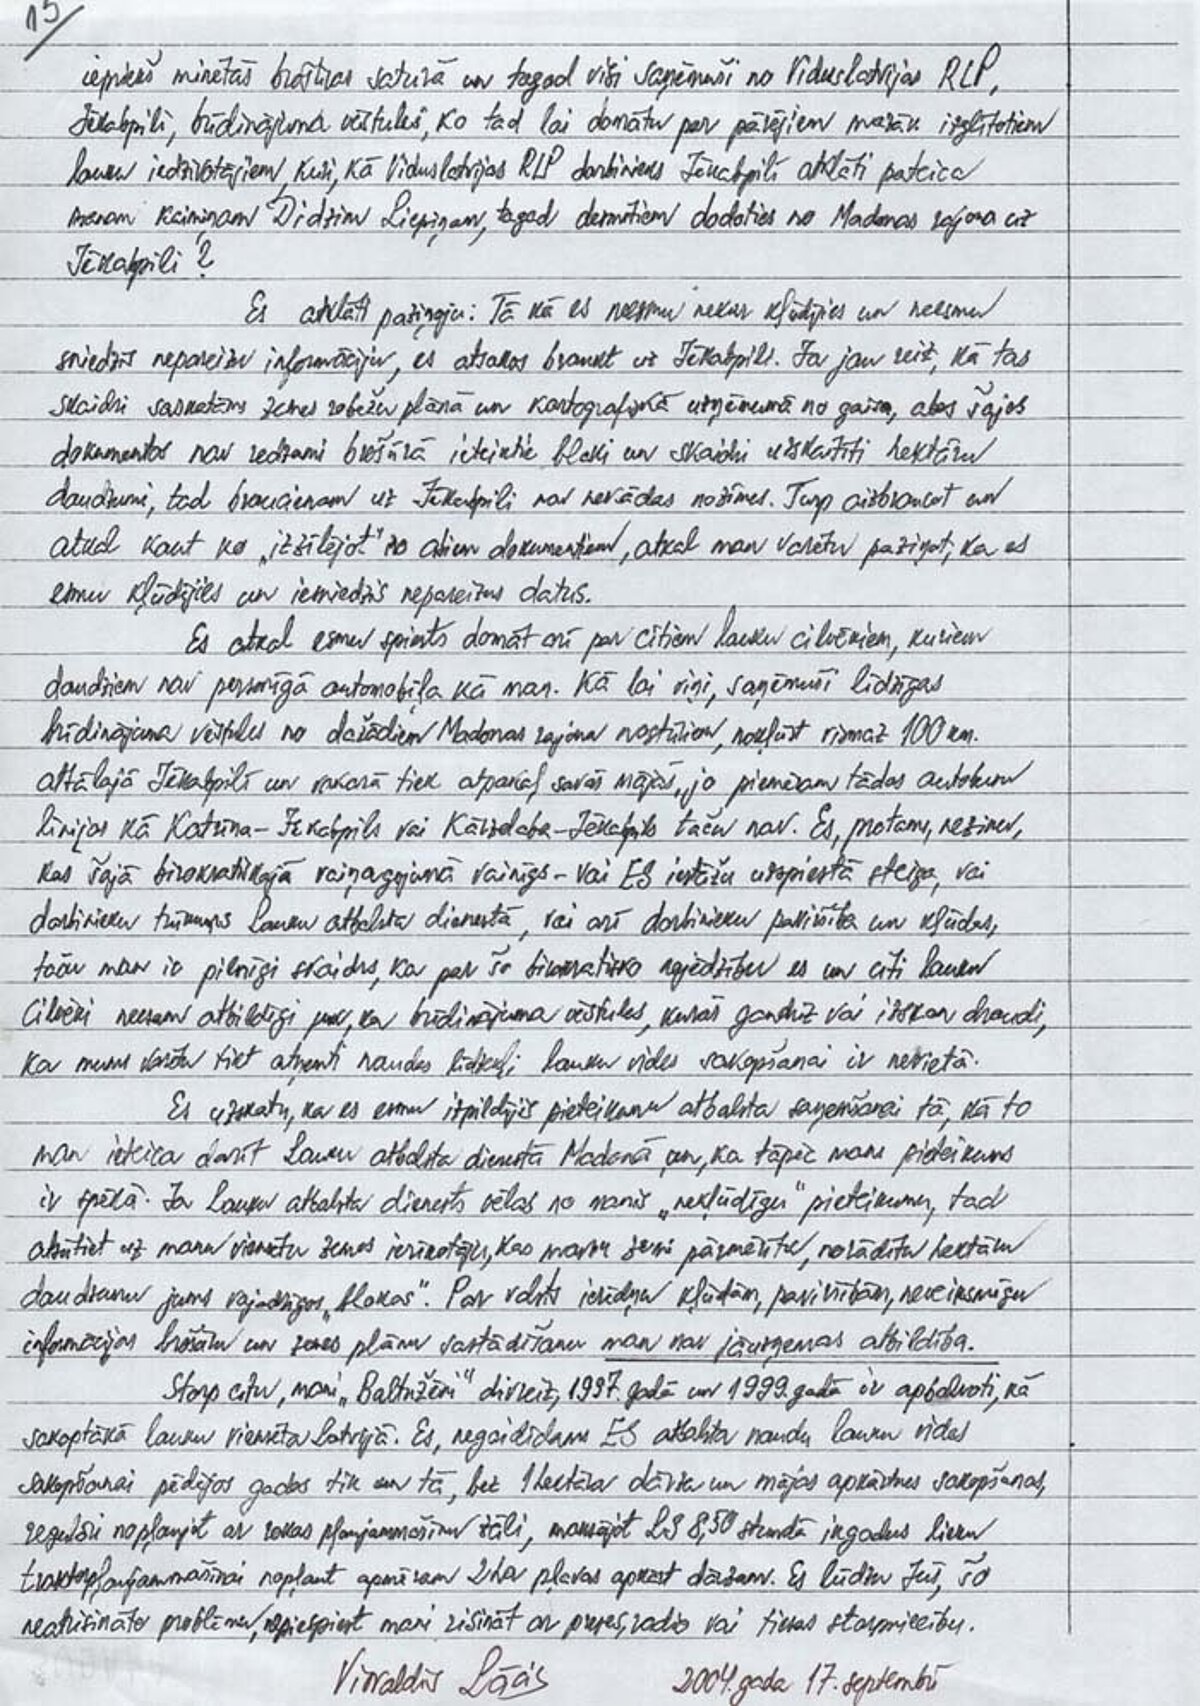 15/
iepriekš minētās brošūras saturā un tagad viņi saņēmuši no Viduslatvijas RLP,
Jēkabpilī, brīdinājuma vēstules, ko tad lai domātu par pārējiem mazāk izglītotiem
lauku iedzīvotājiem, kuri, kā Viduslatvijas RLP darbinieks Jēkabpilī atklāti pateica
manam kaimiņam Didzim Liepiņam, tagad desmitiem dodoties no Madonas rajona uz
Jēkabpili?
Es atklāti paziņoju: Tā kā es neesmu nekur kļūdījies un neesmu
sniedzis nepareizu informāciju, es atsakos braukt uz Jēkabpili. Ja jau reiz, kā tas
skaidri saskatāms zemes robežu plānā un kartogrāfiskā uzņēmumā no gaisa, abos šajos
dokumentos nav redzami brošūrā ieteiktie bloki un skaidri uzskaitīti hektāru
daudzumi, tad braucienam uz Jēkabpili nav nekādas nozīmes. Turp aizbraucot un
atkal kaut ko „izzīlējot" no abiem dokumentiem, atkal man varētu paziņot, ka es
esmu kļūdījies un iesniedzis nepareizus datus.
Es atkal esmu spiests domāt arī par citiem lauku cilvēkiem, kuriem
daudziem nav personīgā automobiļa kā man. Kā lai viņi, saņēmuši līdzīgas
brīdinājuma vēstules no dažādiem Madonas rajona nostūriem, nokļūst vismaz 100 km.
attālajā Jēkabpilī un vakarā tiek atpakaļ savās mājās, jo piemēram tādas autobusu
līnijas kā Katrīna – Jēkabpils vai Kārzdaba – Jēkabpils taču nav. Es, protams, nezinu,
kas šajā birokrātiskajā vaiņagojumā vainīgs – vai ES iestāžu uzspiestā steiga, vai
darbinieku trūkums Lauku atbalsta dienestā, vai arī darbinieku paviršība un kļūdas,
taču man ir pilnīgi skaidrs, ka par šo birokrātisko nejēdzību es un citi lauku
cilvēki neesam atbildīgi un, ka brīdinājuma vēstules, kurās gandrīz vai izskan draudi,
ka mums varētu tikt atņemti naudas līdzekļi lauku vides sakopšanai ir nevietā.
Es uzskatu, ka es esmu izpildījis pieteikumu atbalsta saņemšanai tā, kā to
man ieteica darīt Lauku atbalsta dienestā Madonā un, ka tāpēc mans pieteikums
ir spēkā. Ja Lauku atbalsta dienests vēlas no manis „nekļūdīgu" pieteikumu, tad
atsūtiet uz manu viensētu zemes ierīkotāju, kas manu zemi pārmērītu, norādītu hektāru
daudzumu jums vajadzīgos „blokos". Par valsts ierēdņu kļūdām, paviršībām, neveiksmīgu
informācijas brošūru un zemes plānu sastādīšanu man nav jāuzņemas atbildība.
Starp citu, mani „Baltužēni" divreiz, 1997. gadā un 1999. gadā ir apbalvoti, kā
sakoptākā lauku viensēta Latvijā. Es, negaidīdams ES atbalsta naudu lauku vides
sakopšanai pēdējos gados tik un tā, bez 1 hektāra dārza un mājas apkārtnes sakopšanas,
regulāri nopļaujot ar rokas pļaujammašīnu zāli, maksājot Ls 8,50 stundā ikgadus lieku
traktorpļaujammašīnai nopļaut apmēram 2 ha pļavas apkārt dārzam. Es lūdzu Jūs, šo
neatrisināto problēmu, nepiespiest mani risināt ar preses, radio vai tiesas starpniecību.
Visvaldis Lācis 2004. gada 17. septembrī